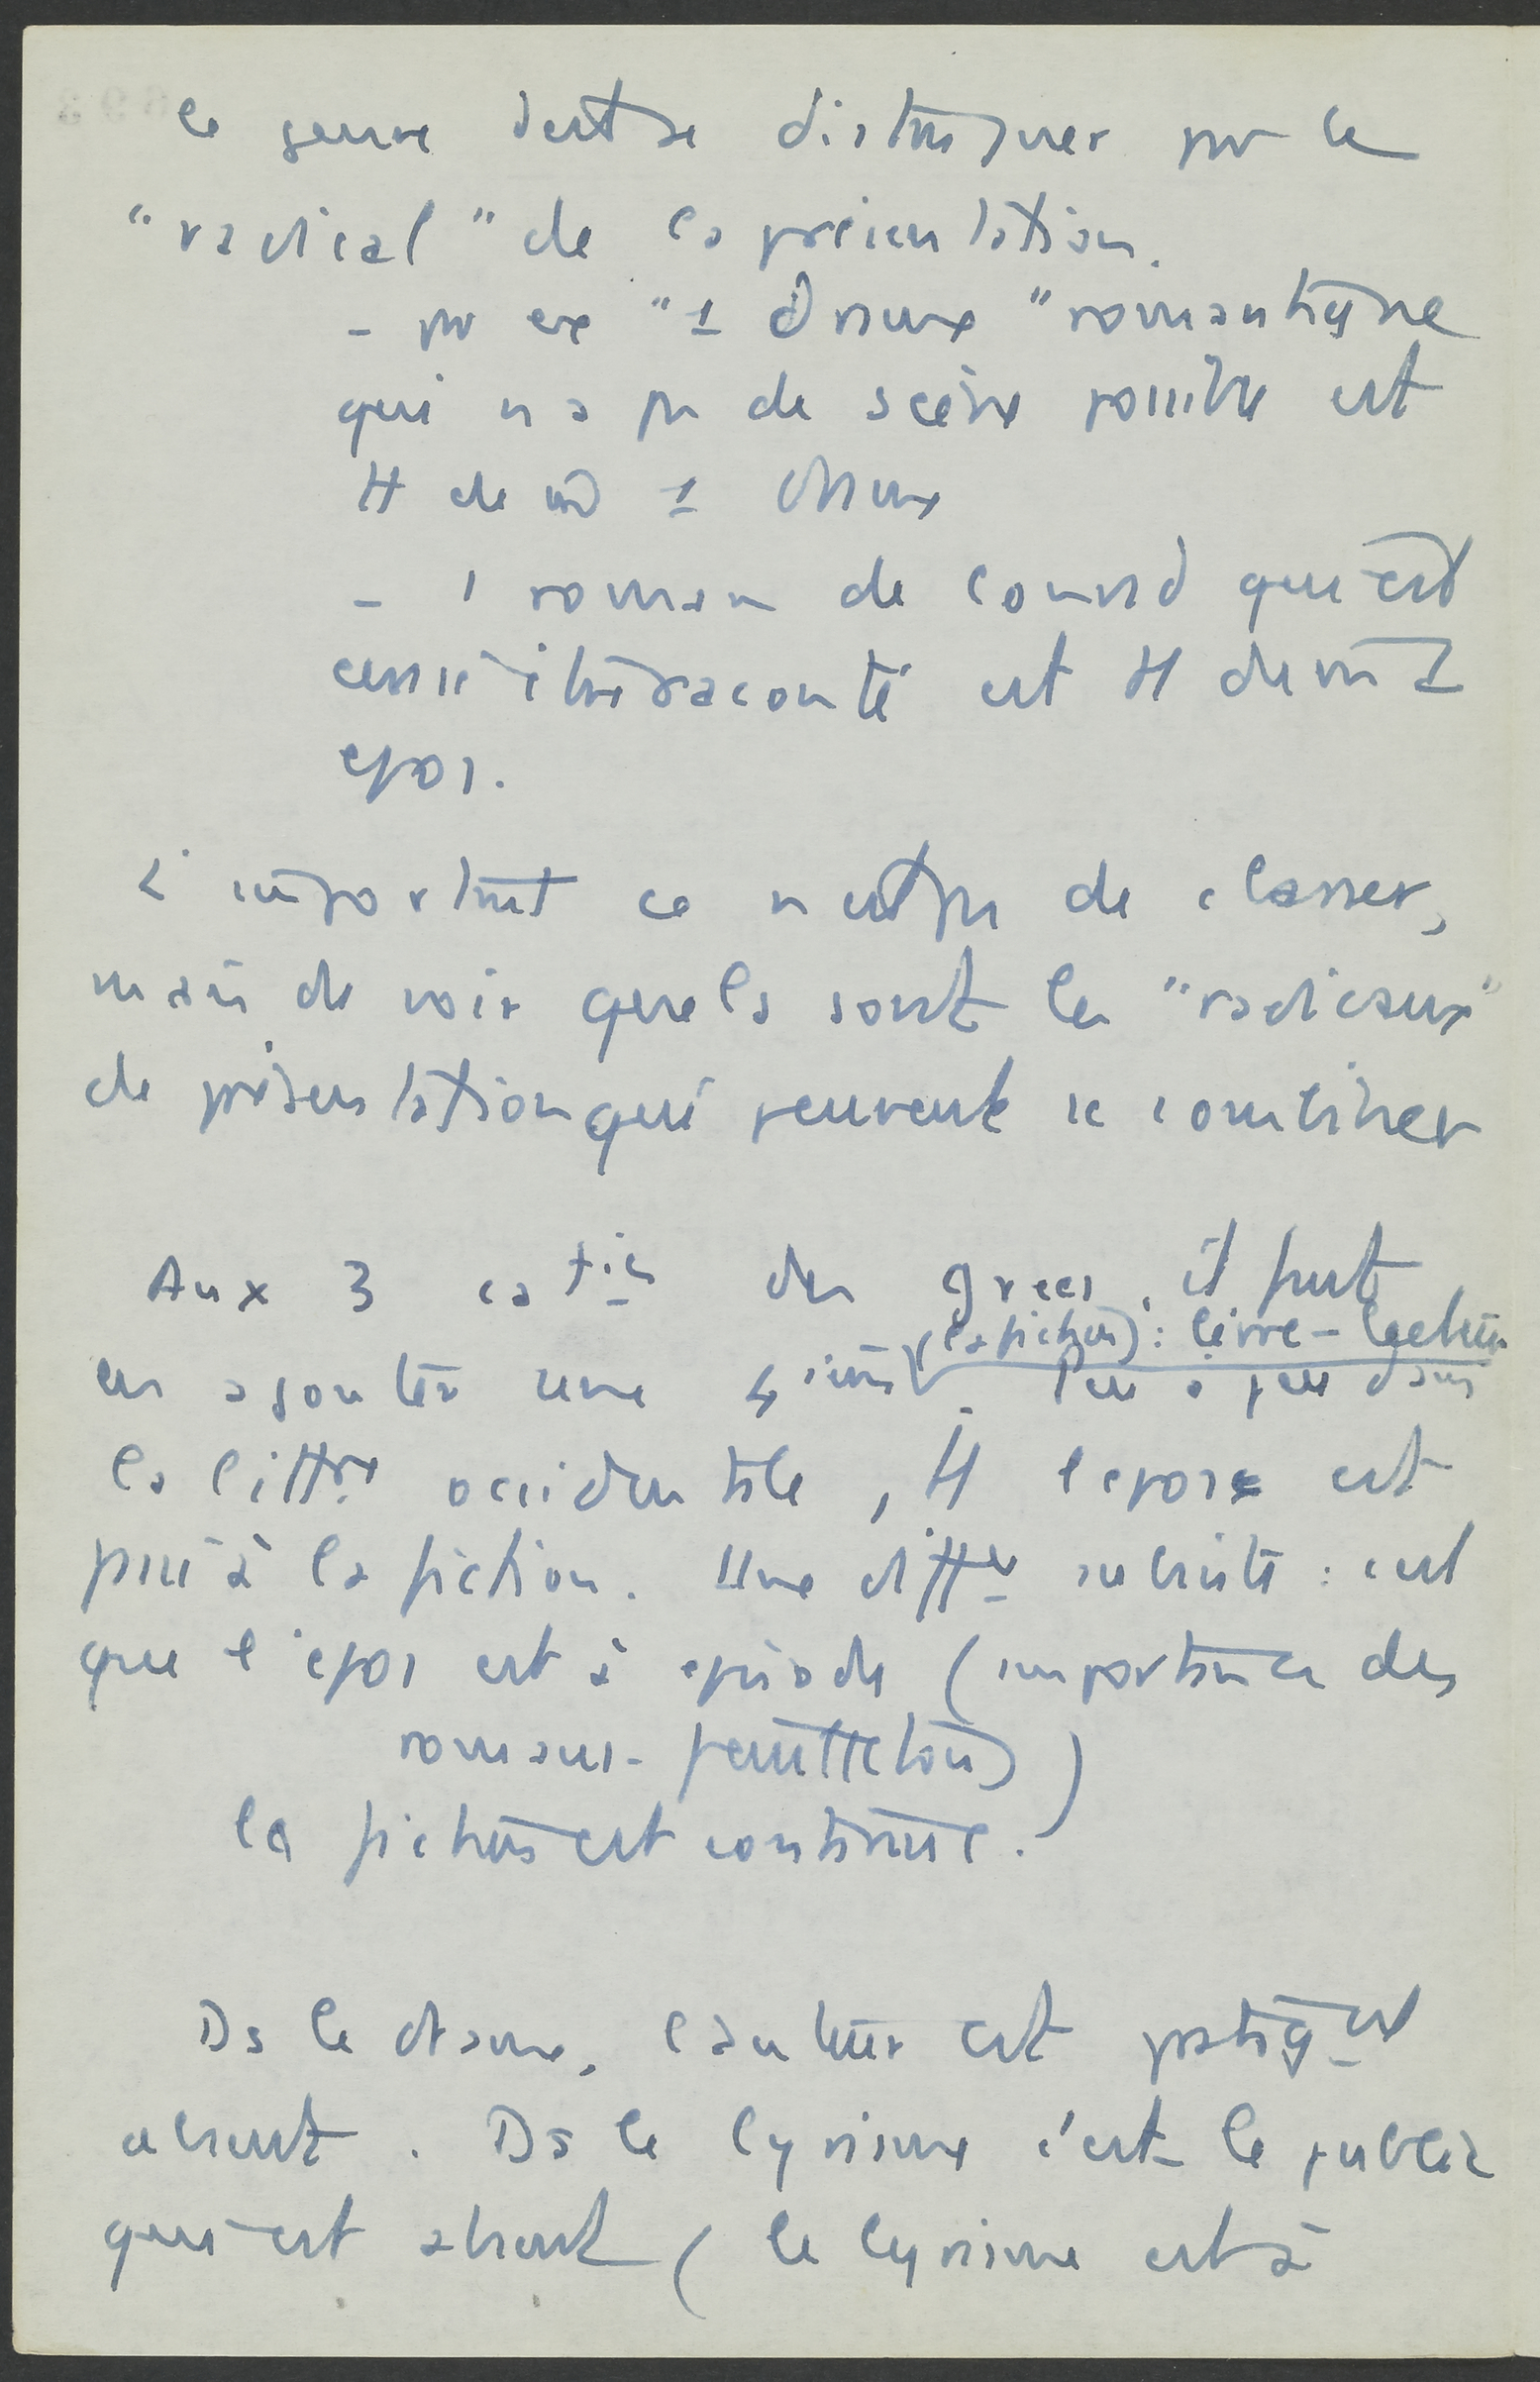 le genre doit se distinguer par le
"radical" de la présentation.
- par ex "1 drame" romantique
qui n'a pas de scène possible est
tt de m̂ 1 drame
- 1 roman de Conrad qui est
censé être raconté est tt de m̂ 1
epos.
L'important ce n'est pas de classer,
mais de voir quels sont les "radicaux"
de présentation qui peuvent se combiner
Aux 3 caties des grecs, il faut
(la fiction) : livre - lecteur
en ajouter une 4ième. Peu à peu dans
la littre occidentale, tt l'epos est
passé à la fiction. Une diffce subsiste : c'est
que l'epos est à épisodes (importance des
romans-feuilletons)
la fiction est continue.
Ds le drame, l'auteur est pratiqt
absent. Ds le lyrisme c'est le public
qui est absent (le lyrisme est à